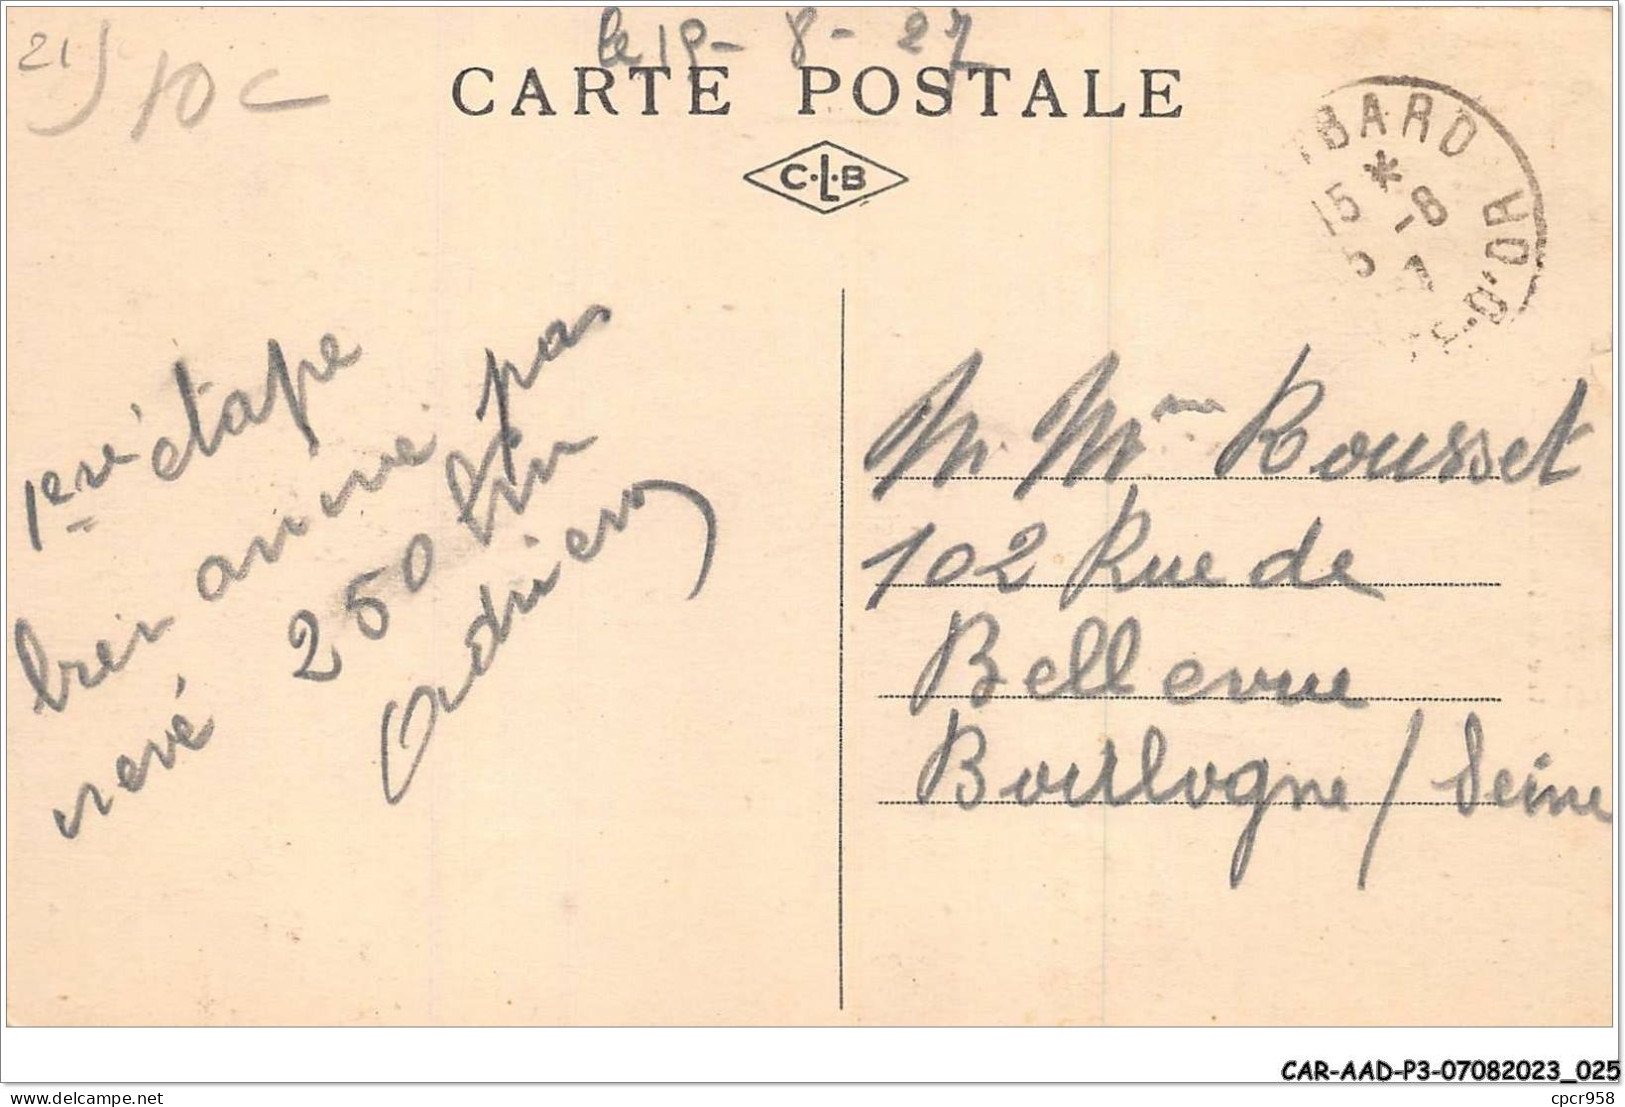 le 15-8-27
21
10c
CARTE POSTALE
C.L.B
BARD
D'OR
15 -8
1ere étape
bien arrivé pas
crevé 250 km
Adrien
M. Mme Rousset
102 Rue de
Bellevue
Boulogne / Seine
CAR-AAD-P3-07082023_025
cpcr958